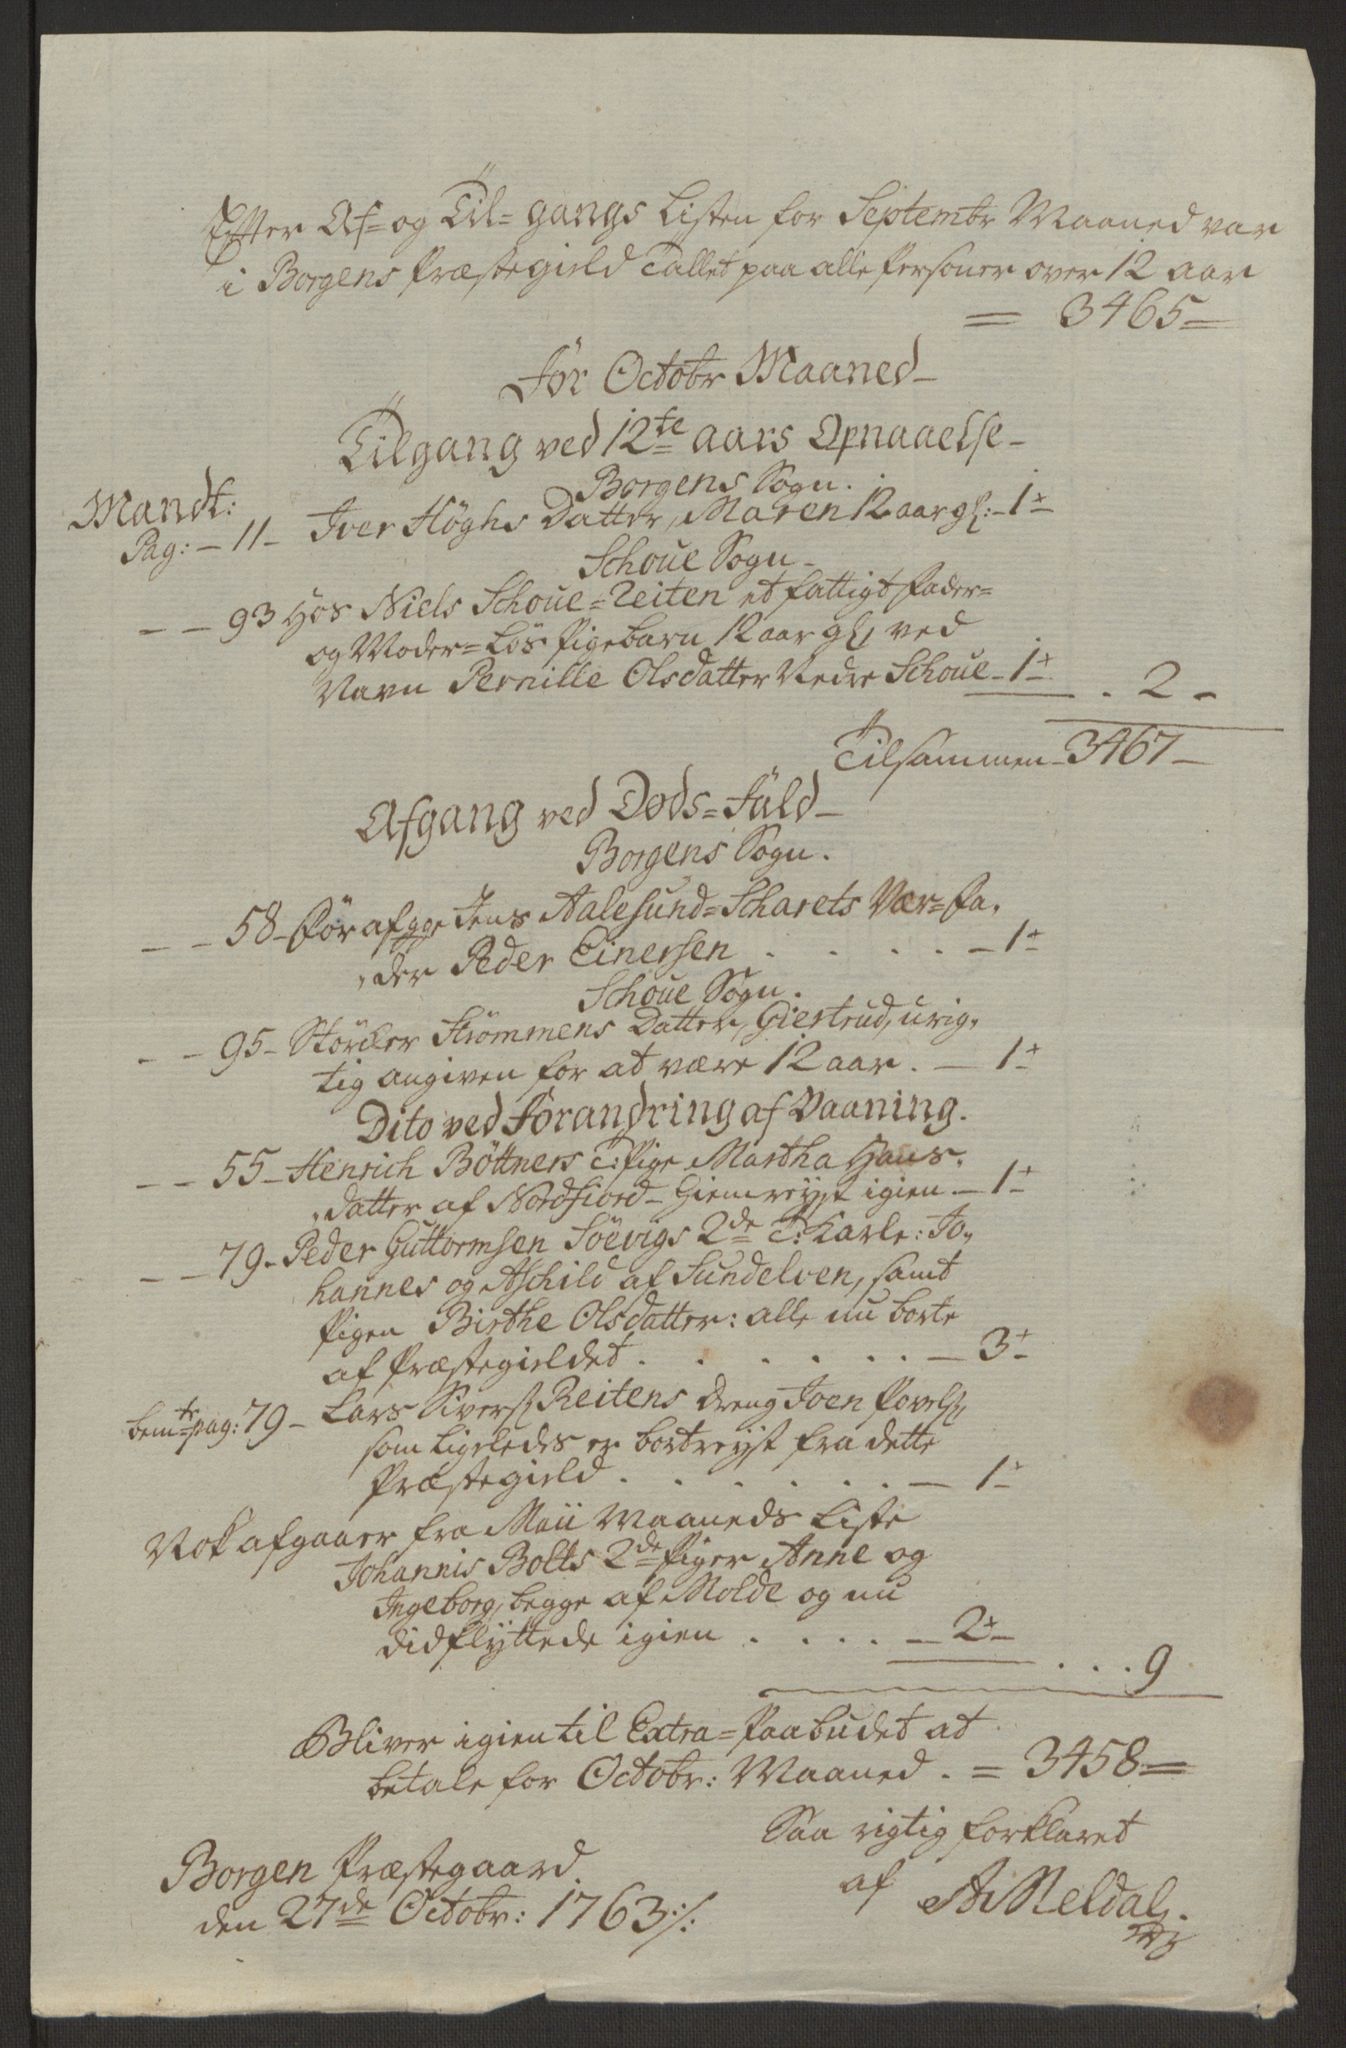 Efter Af= og Til=gangs Listen for Septembr Maaned var
i Borgens Præstegield Tallet paa alle Personer over 12 aar
= 3465 =
För Octobr Maaned –
Tilgang ved 12te aars Opnaaelse –
Borgens Sogn.
Mandt:
Pag: – 11 – Iver Höghs Datter, Maren 12 aar gl: – 1 –
Schoue Sogn –
– – 93 Hos Niels Schoue=Reiten et fattigt fader=
og Moder=Lös Pigebarn 12 aar gl ved
Navn Pernille Olsdatter Nedre Schoue – 1 –
. 2 –
Tilsammen – 3467 –
Afgang ved Döds=Fald –
Borgens Sogn.
– – 58 – för afgge Jens Aalesund=Scharets Vær=Fa,
,der Peder Einersen . . . . – 1 –
Schoue Sogn.
– – 95 – Störcker Strömmens Datter, Giertrud, urig,
tig angiven for at være 12 aar . – 1 –
Dito ved Forandring af Vaaning.
– – 55 – Henrich Böttners T: Pige Martha Hans,
,datter af Nordfiord – hiemreyst igien. – 1 –
– – 79 – Peder Guttormsen Söevigs 2de T: Karle: Jo,,
hannes og Aschild af Sundelven, samt
Pigen Birthe Olsdatter: alle nu borte
af Præstegieldet . . . . . . – 3 –
bemte pag: 79 – Lars Siverss Reitens dreng Joen Povels:
som Ligeledes er bortreyst fra dette
Præstegield . . . . . – 1 –
Nok afgaaer fra Maii Maaneds Liste
Johannis Bolts 2de Piger Anne og
Ingeborg, begge af Molde og nu
didflyttede igien . . . . – 2 –
. . . 9
Bliver igien til Extra=Paabudet at
betale for Octobr: Maaned . = 3458 =
Saa rigtig forklaret
af A: Meldal.
Borgen Præstegaard
den 27de Octobr: 1763 ./.